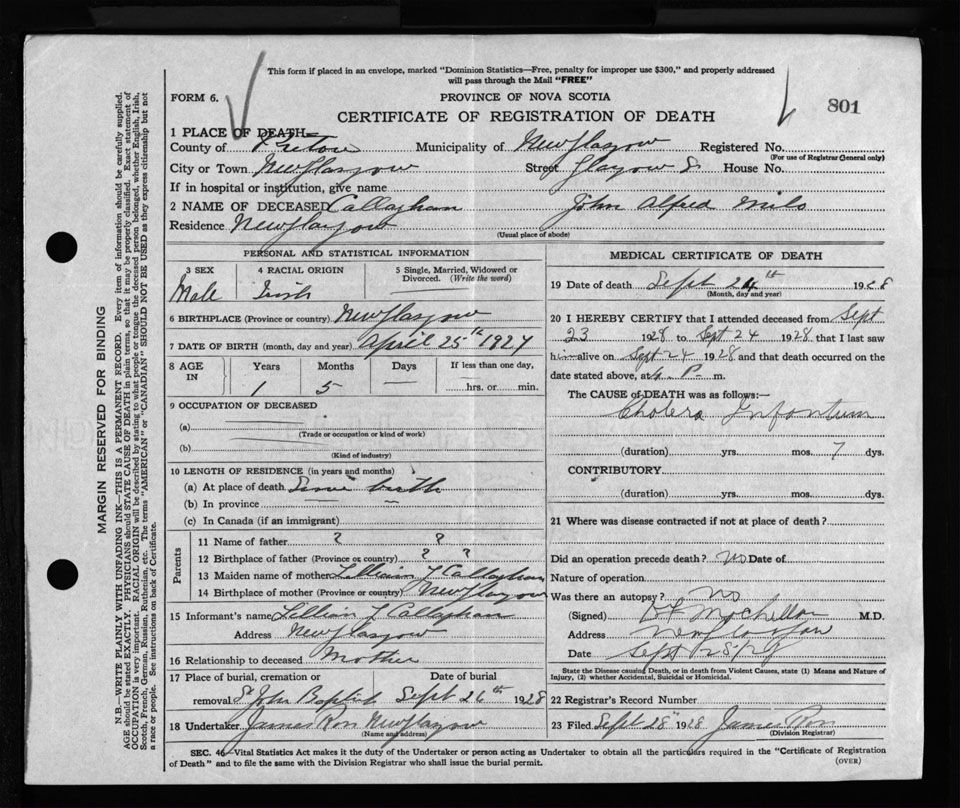 This form if placed in an envelope, marked "Dominion Statistics—Free, penalty for improper use $300," and properly addressed
will pass through the Mail "FREE"
FORM 6.
PROVINCE OF NOVA SCOTIA
801
CERTIFICATE OF REGISTRATION OF DEATH
1 PLACE OF DEATH—
County of Pictou Municipality of New Glasgow Registered No.
(For use of Registrar General only)
City or Town New Glasgow Street Glasgow St House No.
If in hospital or institution, give name
2 NAME OF DECEASED Callaghan John Alfred Milo
Residence New Glasgow
(Usual place of abode)
PERSONAL AND STATISTICAL INFORMATION
3 SEX 4 RACIAL ORIGIN 5 Single, Married, Widowed or
Divorced. (Write the word)
Male Irish —
6 BIRTHPLACE (Province or country) New Glasgow
7 DATE OF BIRTH (month, day and year) April 25th 1927
8 AGE IN Years Months Days If less than one day,
1 5 — hrs. or min.
9 OCCUPATION OF DECEASED
(a)
(Trade or occupation or kind of work)
(b)
(Kind of industry)
10 LENGTH OF RESIDENCE (in years and months)
(a) At place of death Since birth
(b) In province —
(c) In Canada (if an immigrant)
Parents
11 Name of father ? ?
12 Birthplace of father (Province or country) ? ?
13 Maiden name of mother Lillian J Callaghan
14 Birthplace of mother (Province or country) New Glasgow
15 Informant's name Lillian J Callaghan
Address New Glasgow
16 Relationship to deceased Mother
17 Place of burial, cremation or Date of burial
removal St John Baptist Sept 26th 1928
18 Undertaker James Ross New Glasgow
(Name and address)
MEDICAL CERTIFICATE OF DEATH
19 Date of death Sept 24th 1928
(Month, day and year)
20 I HEREBY CERTIFY that I attended deceased from Sept
23 1928 to Sept 24 1928 that I last saw
him alive on Sept 24 1928 and that death occurred on
date stated above, at P. m.
The CAUSE OF DEATH was as follows:—
Cholera Infantum
(duration) yrs. mos. 7 dys.
CONTRIBUTORY
(duration) yrs. mos. dys.
21 Where was disease contracted if not at place of death?
Did an operation precede death? No Date of
Nature of operation
Was there an autopsy? No
(Signed) M.D.
Address New Glasgow
Date Sept 25/28
State the Disease causing Death, or in death from Violent Causes, state (1) Means and Nature of
Injury, (2) whether Accidental, Suicidal or Homicidal.
22 Registrar's Record Number
23 Filed Sept 28th 1928 James Ross
(Division Registrar)
SEC. 46—Vital Statistics Act makes it the duty of the Undertaker or person acting as Undertaker to obtain all the particulars required in the "Certificate of Registration
of Death" and to file the same with the Division Registrar who shall issue the burial permit.
(OVER)
MARGIN RESERVED FOR BINDING
N.B.—WRITE PLAINLY WITH UNFADING INK—THIS IS A PERMANENT RECORD. Every item of information should be carefully supplied.
AGE should be stated EXACTLY. PHYSICIANS should STATE CAUSE OF DEATH in plain terms, so that it may be properly classified. Exact statement of
OCCUPATION is very important. RACIAL ORIGIN will be described by stating to what people or tongue the deceased person belonged, whether English, Irish,
Scotch, French, German, Russian, Ruthenian, etc. The terms "AMERICAN" or "CANADIAN" SHOULD NOT BE USED as they express citizenship but not
a race or people. See instructions on back of Certificate.